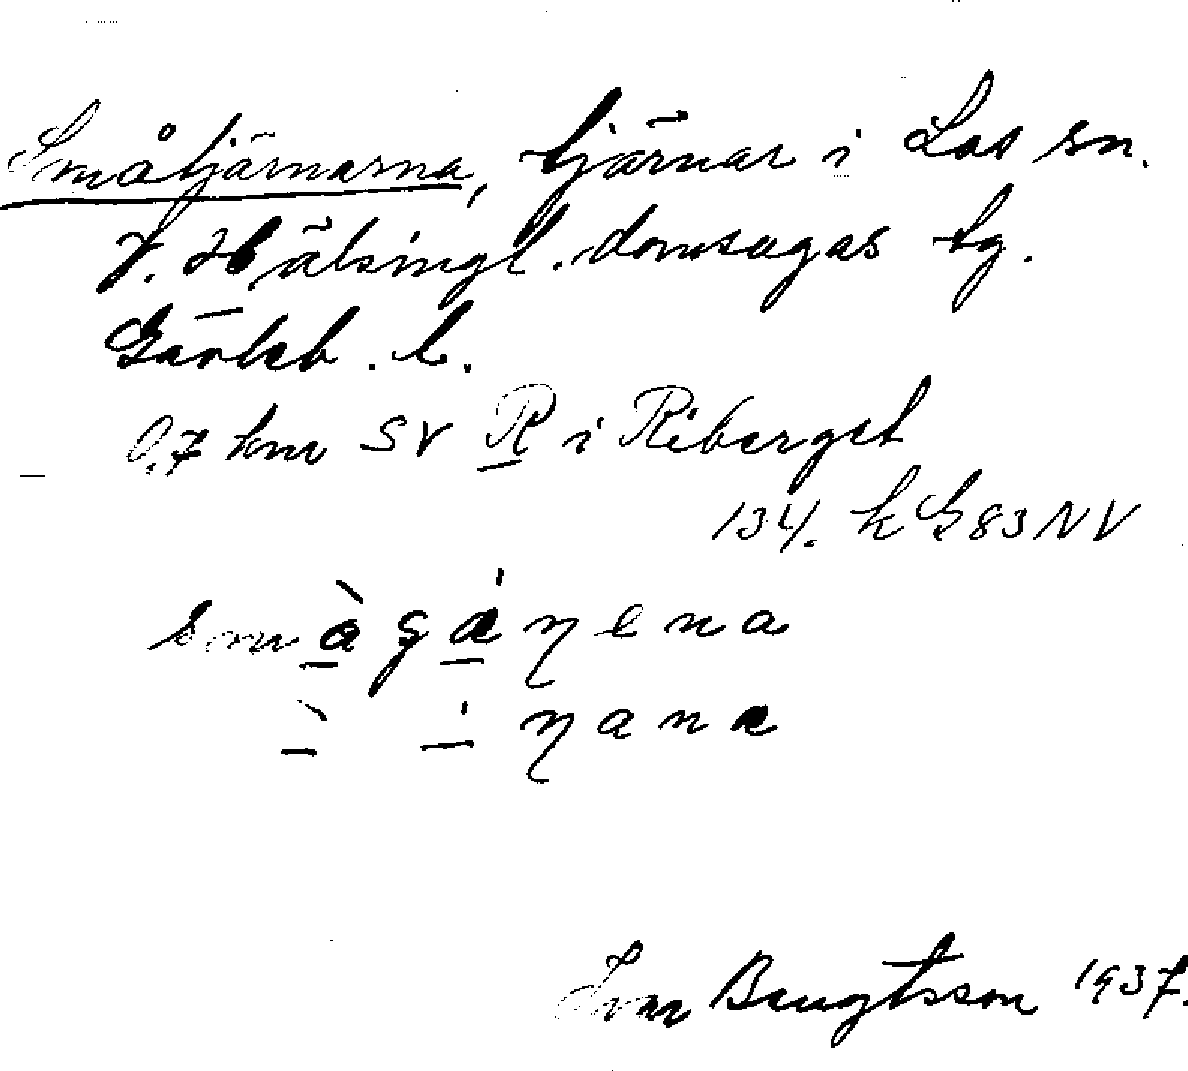 Småtjärnarna, tjärnar i Los sn.
V. Hälsingl. domsagas tg.
Gävleb. l.
0,7 km SV R i Riberget
134. k G 83 NV
Bengtsson 1937.